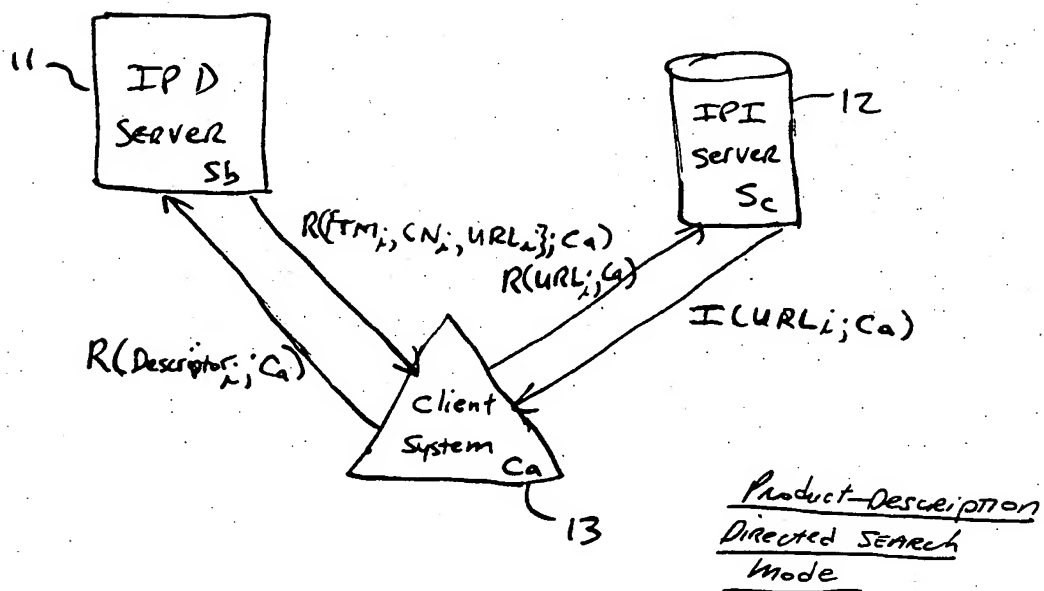 11
IPD
SERVER
Sb
IPI
Server
Sc
12
R({TMi, CNi, URLi}; Ca)
R(URLi; Ca)
I(URLi; Ca)
R(Descriptori; Ca)
Client
System
Ca
13
Product-Description
Directed SEARCh
Mode